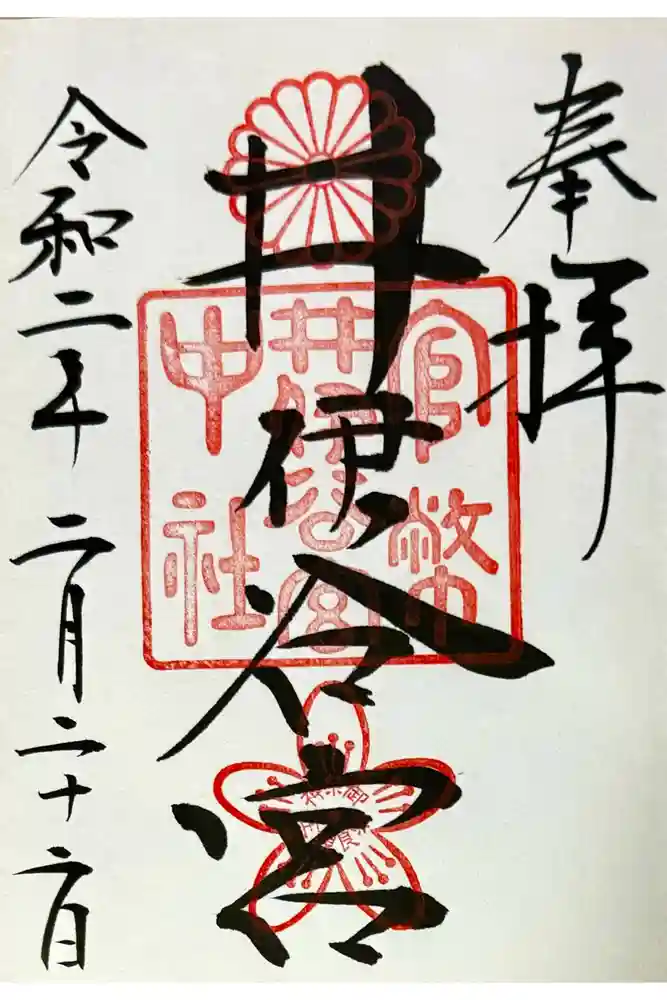 奉拝
井伊谷宮
令和二年二月二十六日
官幣
井伊谷宮
中社